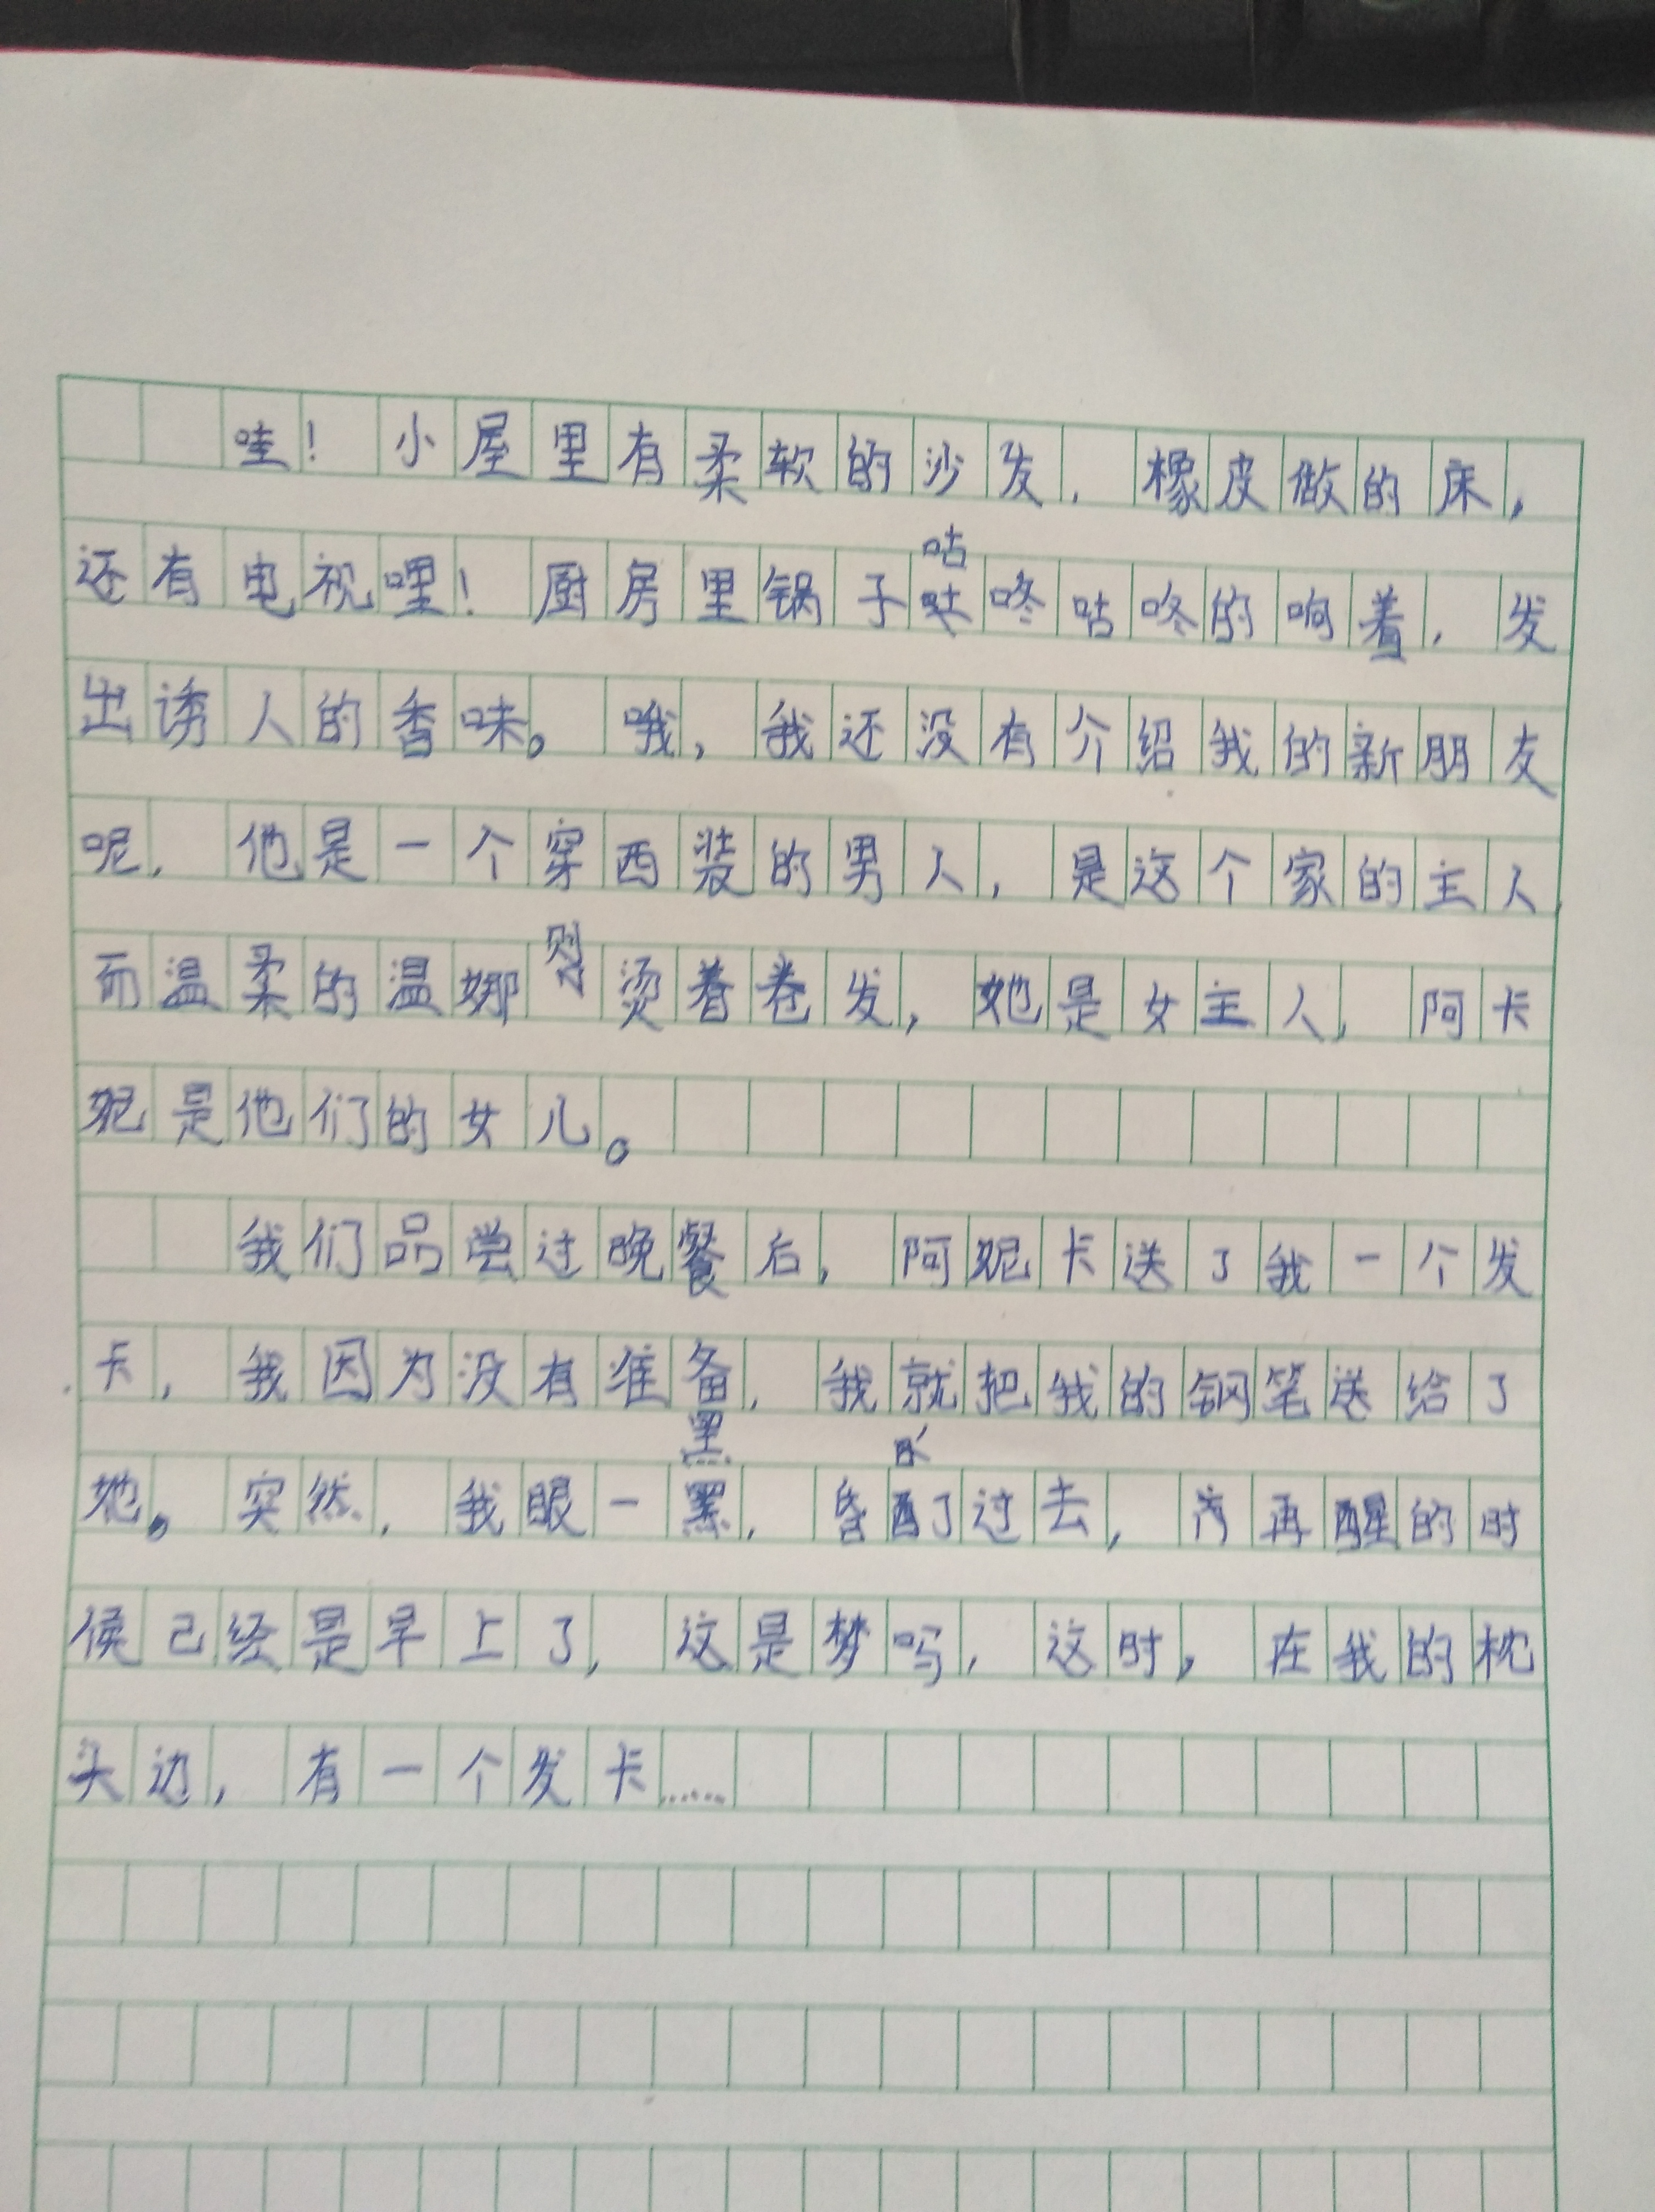 哇！小屋里有柔软的沙发，橡皮做的床，
还有电视哩！厨房里锅子咕咚咕咚的响着，发
出诱人的香味。哦，我还没有介绍我的新朋友
呢，他是一个穿西装的男人，是这个家的主人
而温柔的温娜则烫着卷发，她是女主人，阿卡
妮是他们的女儿。
我们品尝过晚餐后，阿妮卡送了我一个发
卡，我因为没有准备，我就把我的钢笔送给了
她。突然，我眼一黑，昏了过去，再醒的时
侯己经是早上了，这是梦吗，这时，在我的枕
头边，有一个发卡……